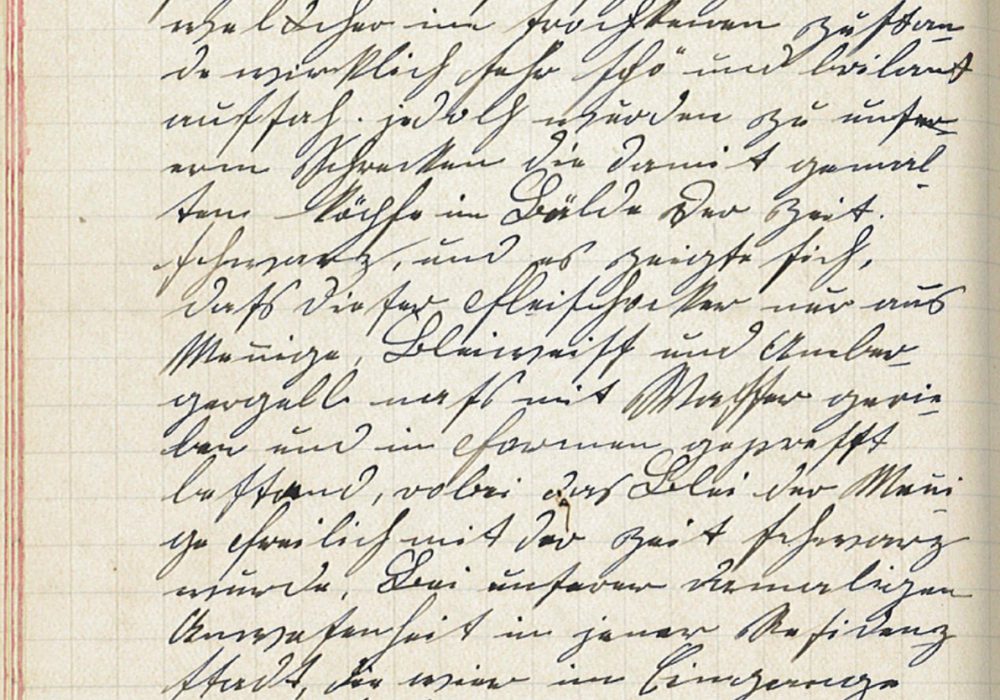 welcher im trockenen Zustan-
de wirklich sehr schö und brilant
aussah. jedoch wurden zu unser-
erm Schrecken die damit gemal-
ten Köpfe im Bälde der Zeit.
schwarz, und es zeigte sich,
dass dieser Fleischocker nur aus
Menige, Bleiweiss und Amber-
gergelb nass mit Wasser gerie-
ben und in Formen gepresst
bestand, wobei das Blei der Meni-
ge freilich mit der Zeit schwarz
wurde. Bei unserer damaligen
Anwesenheit in jener Residenz
stadt, die wier im Eingange